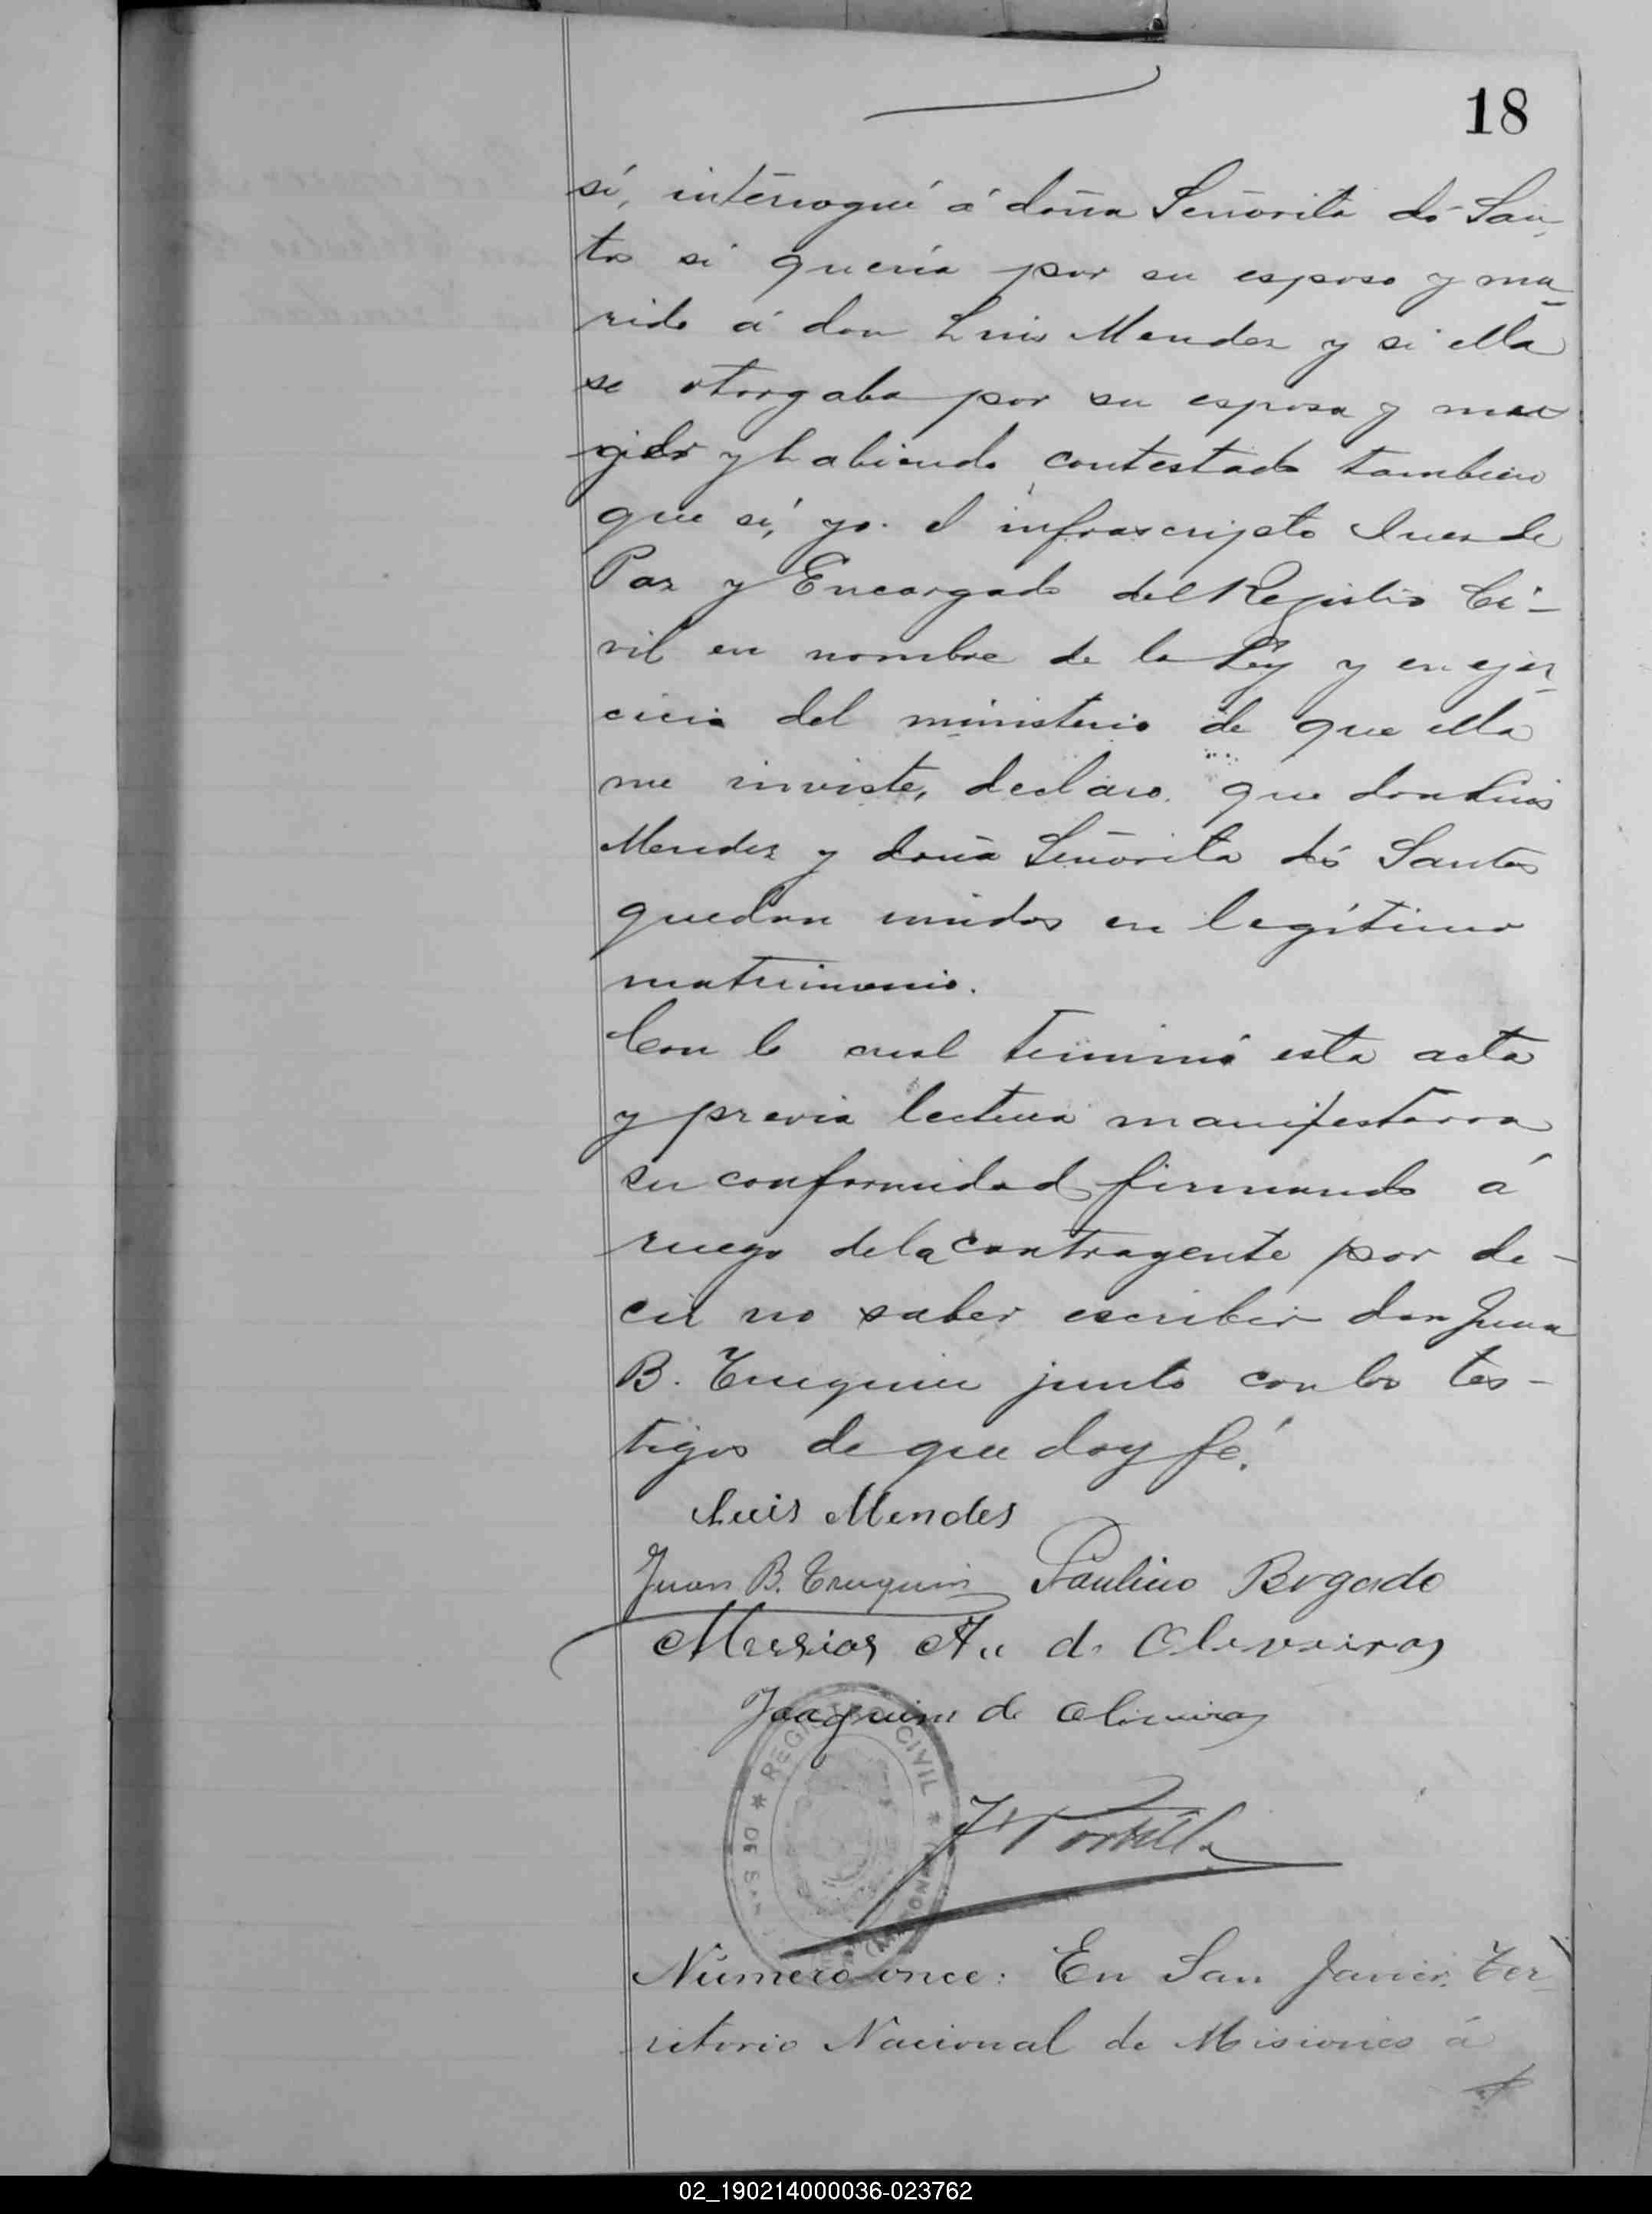 18
sí, interrogué á doña Señorita dó San-
tos si quería por su esposo y ma-
rido á don Luis Mendez y si ella
se otorgaba por su esposa y mu
gier y habiendo contestado tambien
que sí, yo el infrascripto Juez de
Paz y Encargado del Registro Ci-
vil en nombre de la Ley y en ejer-
cicio del ministerio de que ella
me inviste, declaro que don Luis
Mendez y doña Señorita dó Santos
quedan unidos en legítimo
matrimonio.
Con lo cual terminó esta acta
y previa lectura manifestaron
su conformidad firmando á
ruego de la contrayente por de-
cir no saber escribir don Juan
B. Truquin junto con los tes-
tigos de que doy fé.
Luis Mendes
Juan B. Truquin Paulino Bogado
Messias de Oliveira
Joaquim de Oliveira
REGISTRO CIVIL
J. Portilla
Número once: En San Javier, Ter-
ritorio Nacional de Misiones á
02_190214000036-023762